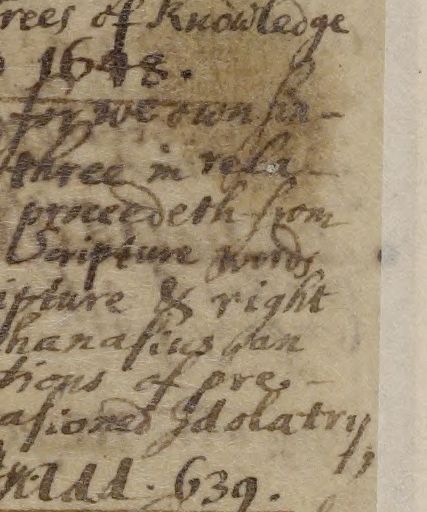 rees of Knowledge
1648.
for we own sn-
three in rela-
proceedeth from
Scripture words
ipture & right
hanasius, an
tions of pre-
asioned Idolatry,
Add. 639.